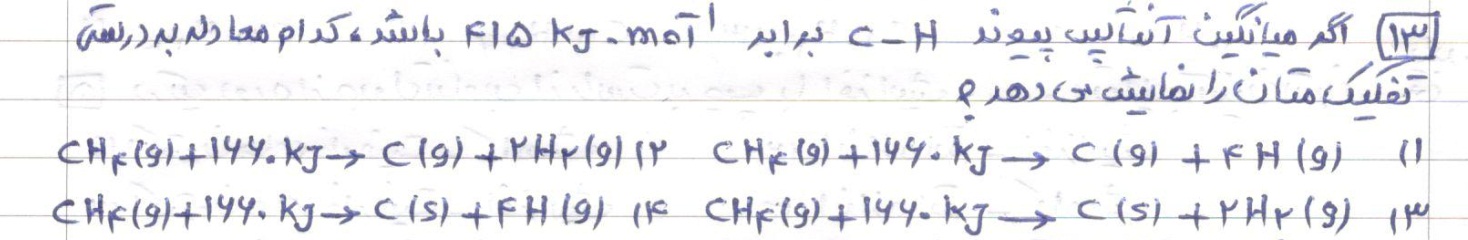 ۱۳ اگر میانگین آنتالپی پیوند C-H برابر ۴۱۵ kJ.mol⁻¹ باشد، کدام معادله به درستی
تفکیک متان را نمایش می دهد؟
۱) CH۴(g)+۱۶۶۰kJ → C(g) + ۴H(g) ۲) CH۴(g)+۱۶۶۰kJ → C(g)+۲H۲(g)
۳) CH۴(g)+۱۶۶۰kJ → C(s)+۲H۲(g) ۴) CH۴(g)+۱۶۶۰kJ → C(s)+۴H(g)